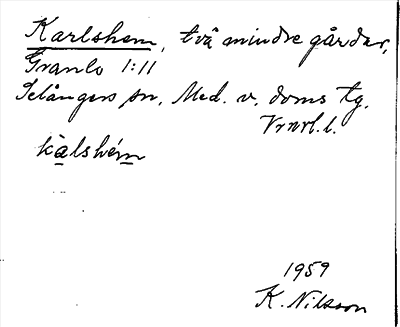 Karlshem, två mindre gårdar,
Granlo 1:11
Selångers sn, Med. v. doms tg.
Vrnrl. l.
kàlshém
1959
K. Nilsson